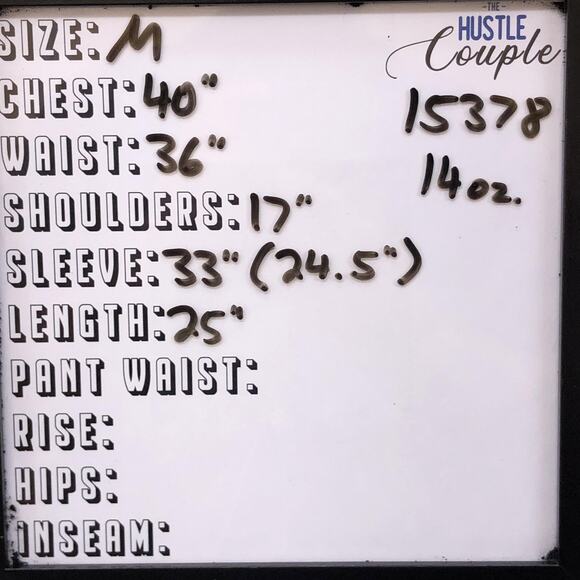 THE
HUSTLE
Couple
SIZE: M
CHEST: 40"
15378
WAIST: 36"
14 oz.
SHOULDERS: 17"
SLEEVE: 33" (24.5")
LENGTH: 25"
PANT WAIST:
RISE:
HIPS:
INSEAM: